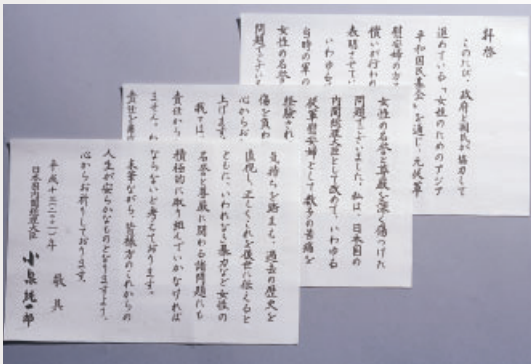 拝啓
このたび、政府と国民が協力して
進めている「女性のためのアジア
平和国民基金」を通じ、元従軍
慰安婦の方
償いが行わ
表明させてい
いわゆる
当時の軍の
女性の名誉
問題でござい
女性の名誉と尊厳を深く傷つけた
問題でございました。私は、日本国の
内閣総理大臣として改めて、いわゆる
従軍慰安婦として数多の苦痛を
経験され
傷を負わ
心からお
上げます。
我々は、
責任から
ません。わ
責任を痛
気持ちを踏まえ、過去の歴史を
直視し、正しくこれを後世に伝えると
ともに、いわれなき暴力など女性の
名誉と尊厳に関わる諸問題にも
積極的に取り組んでいかなければ
ならないと考えております。
末筆ながら、皆様方のこれからの
人生が安らかなものとなりますよう、
心からお祈りしております。
敬具
平成十三(二〇〇一)年
日本国内閣総理大臣
小泉純一郎